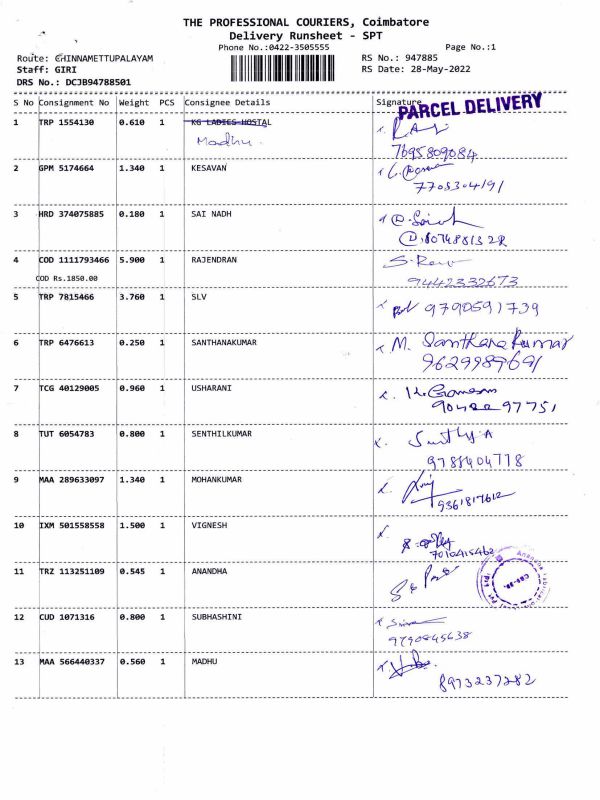 THE PROFESSIONAL COURIERS, Coimbatore
Delivery Runsheet - SPT
Phone No.:0422-3505555 Page No.:1
Route: CHINNAMETTUPALAYAM RS No.: 947885
Staff: GIRI RS Date: 28-May-2022
DRS No.: DCJB94788501
S No Consignment No Weight PCS Consignee Details Signature
PARCEL DELIVERY
1 TRP 1554130 0.610 1 KG LADIES HOSTAL
Madhu.
7695809084
2 GPM 5174664 1.340 1 KESAVAN
7705304191
3 HRD 374075885 0.180 1 SAI NADH
4 COD 1111793466 5.900 1 RAJENDRAN
COD Rs.1850.00 9442332673
5 TRP 7815466 3.760 1 SLV
9790591739
6 TRP 6476613 0.250 1 SANTHANAKUMAR M. Santhana Kumar
9629989691
7 TCG 40129005 0.960 1 USHARANI
8 TUT 6054783 0.800 1 SENTHILKUMAR
9788404778
9 MAA 289633097 1.340 1 MOHANKUMAR
9361817612
10 IXM 501558558 1.500 1 VIGNESH
7010415462
11 TRZ 113251109 0.545 1 ANANDHA
12 CUD 1071316 0.800 1 SUBHASHINI
9790845638
13 MAA 566440337 0.560 1 MADHU
8973237282